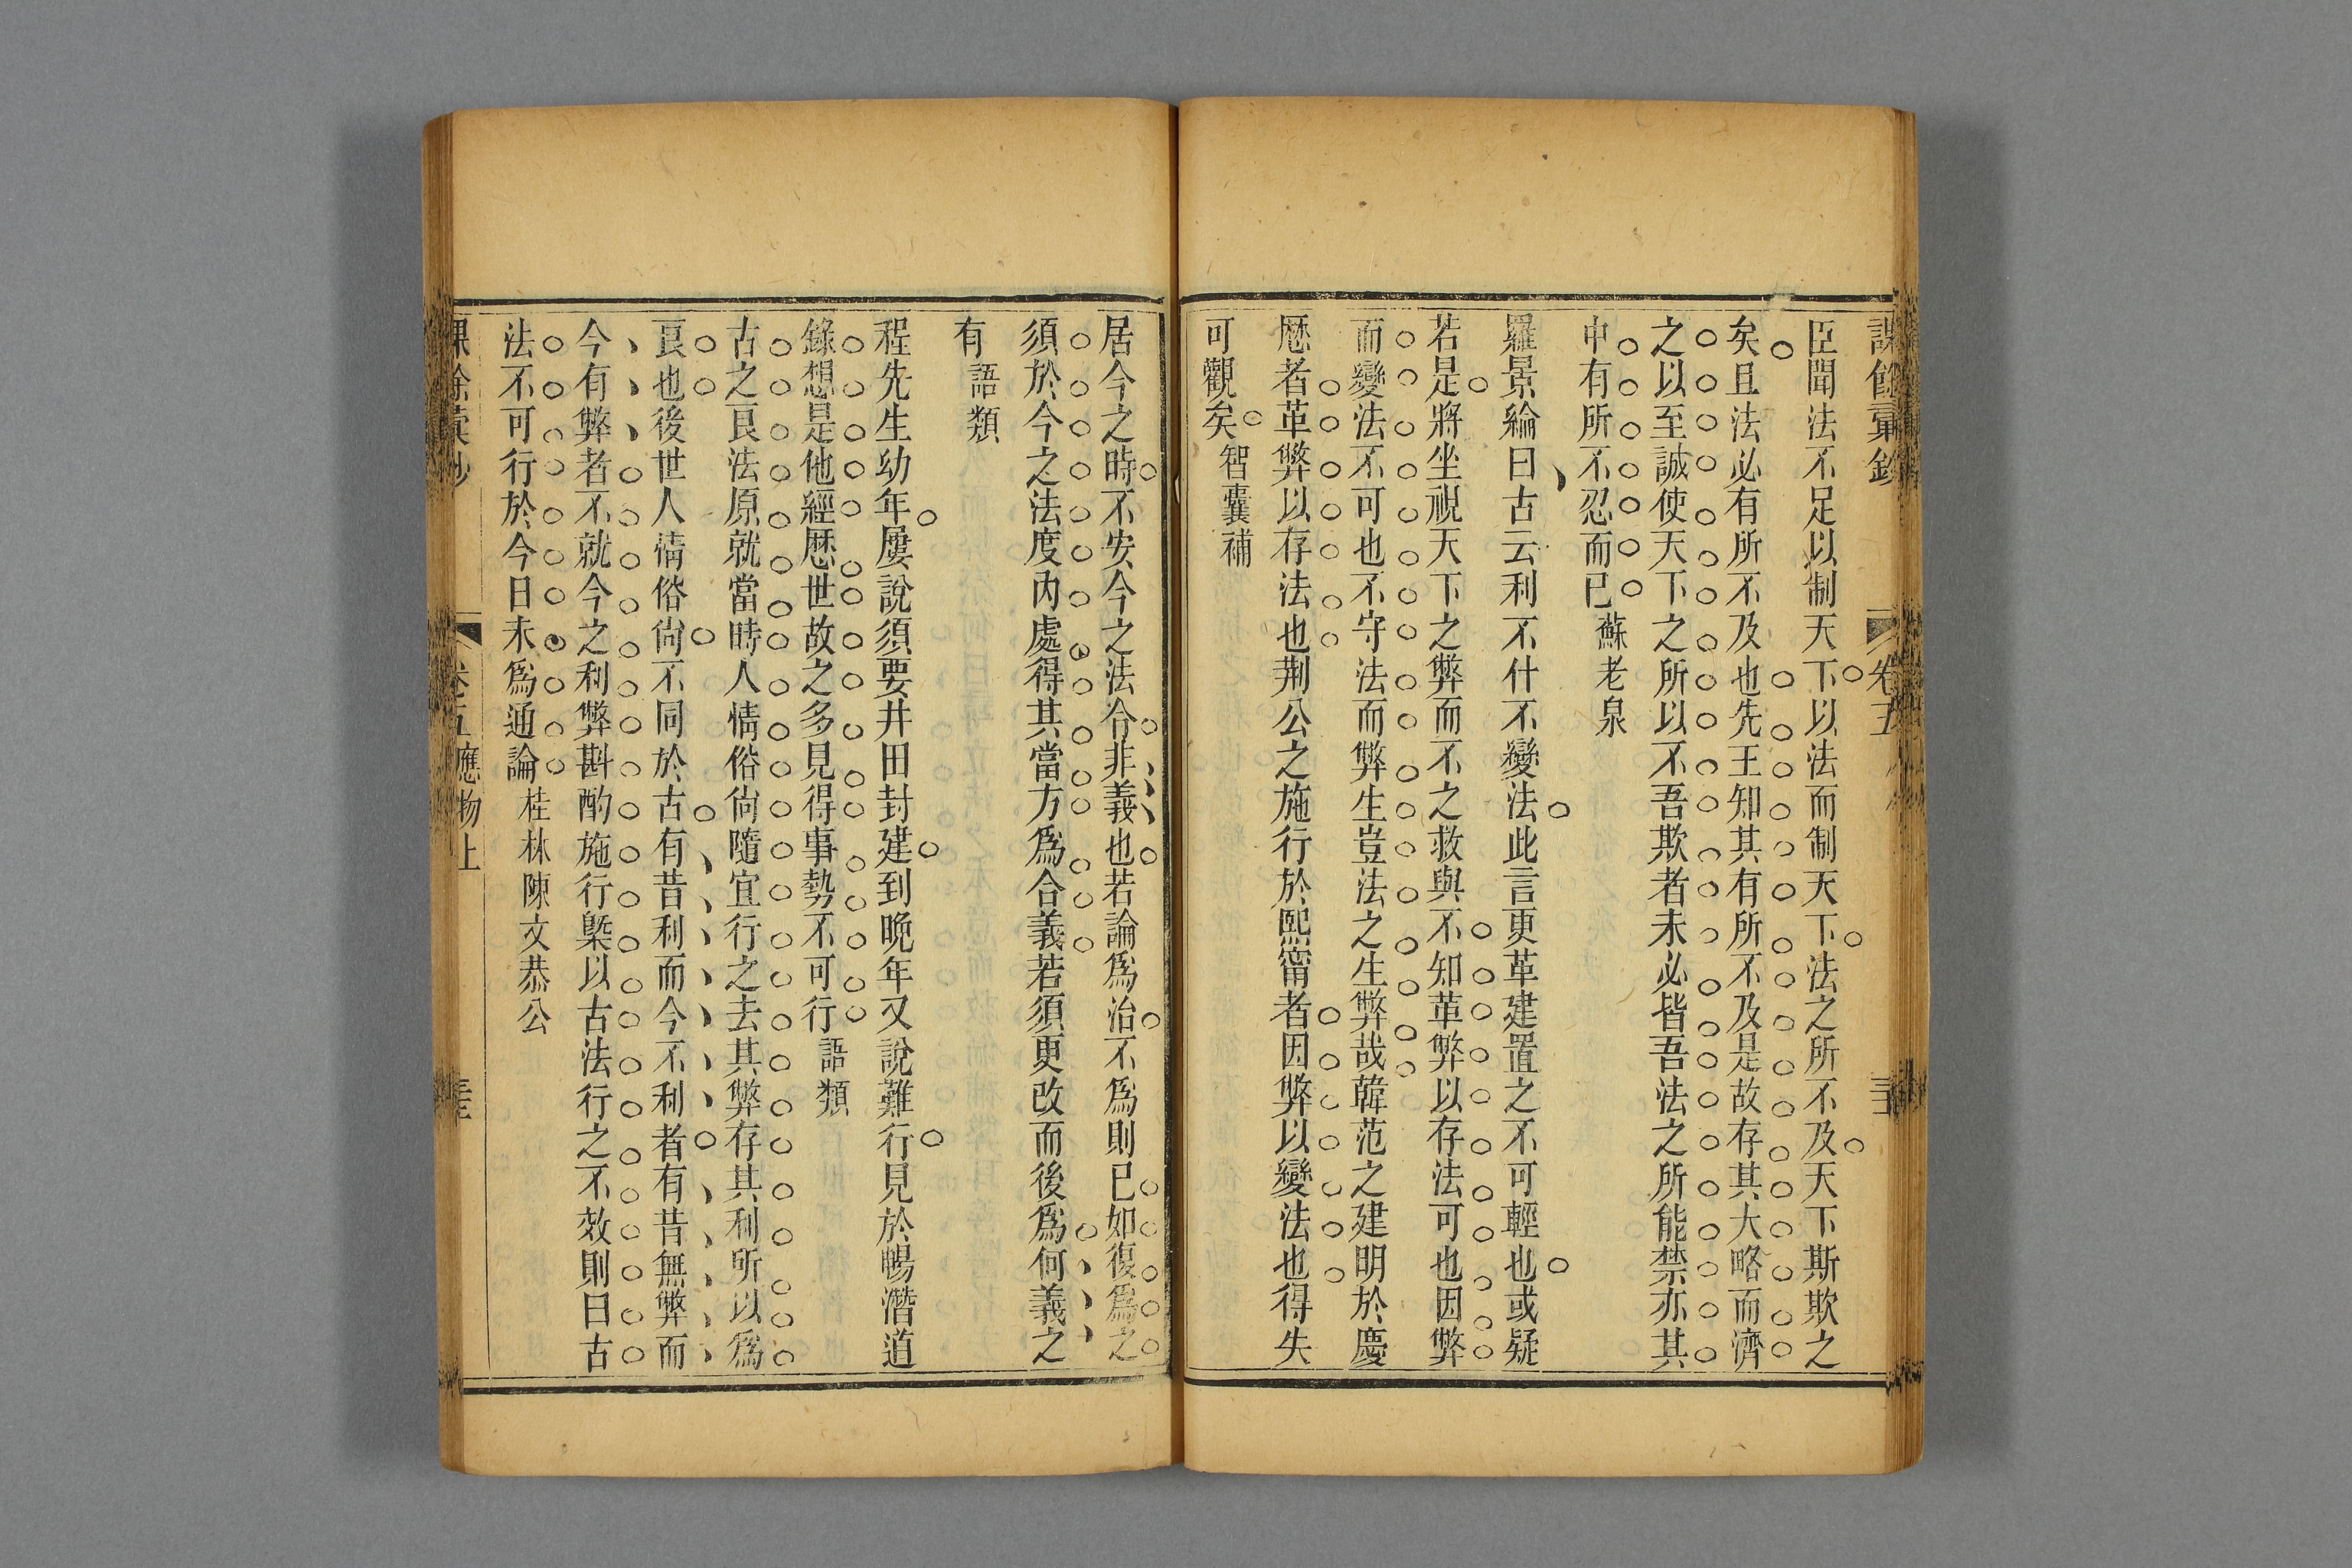 課餘彙鈔 卷五
臣聞法不足以制天下以法而制天下法之所不及天下斯欺之
矣且法必有所不及也先王知其有所不及是故存其大略而濟
之以至誠使天下之所以不吾欺者未必皆吾法之所能禁亦其
中有所不忍而已蘇老泉
羅景綸曰古云利不什不變法此言更革建置之不可輕也或疑
若是將坐視天下之弊而不之救與不知革弊以存法可也因弊
而變法不可也不守法而弊生豈法之生弊哉韓范之建明於慶
歷者革弊以存法也荆公之施行於熙甯者因弊以變法也得失
可觀矣智囊補
居今之時不安今之法令非義也若論爲治不爲則已如復爲之
須於今之法度內處得其當方爲合義若須更改而後爲何義之
有語類
程先生幼年屢說須要井田封建到晚年又說難行見於暢潛道
錄想是他經歷世故之多見得事勢不可行語類
古之良法原就當時人情俗尙隨宜行之去其弊存其利所以爲
良也後世人情俗尙不同於古有昔利而今不利者有昔無弊而
今有弊者不就今之利弊斟酌施行槩以古法行之不效則曰古
法不可行於今日未爲通論桂林陳文恭公
卷五應物上